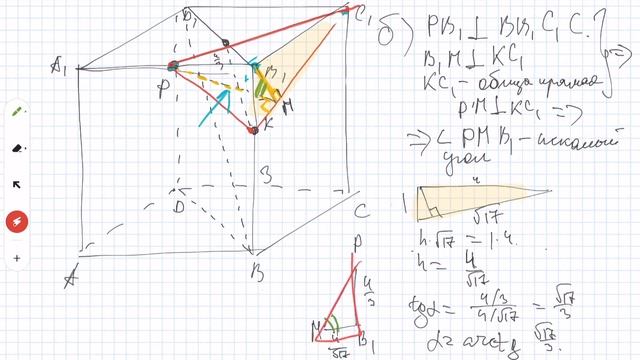 D₁
C₁
A₁
P
B₁
M
K
4/3
1
3
D
C
A
B
б) PB₁⊥BB₁C₁C.
B₁M⊥KC₁
KC₁ - общая прямая
PM⊥KC₁ =>
=> ∠PMB₁ - искомый
угол
4
1
√17
h·√17 = 1·4
h = 4/√17
tgα = (4/3)/(4/√17) = √17/3
α = arctg √17/3
P
4/3
M
B₁
4/√17